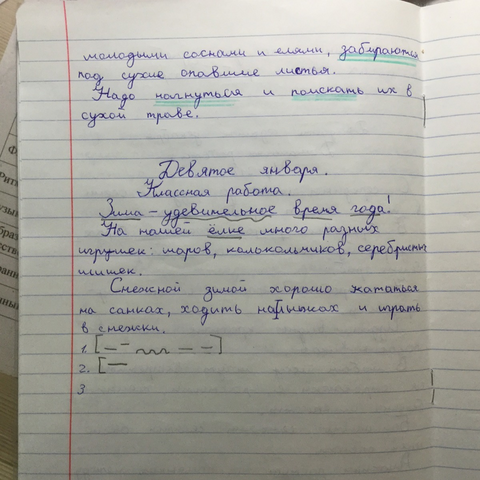 молодыми соснами и елями, забираются
под сухие опавшие листья.
Надо нагнуться и поискать их в
сухой траве.
Девятое января.
Классная работа.
Зима – удевительное время года!
На нашей ёлке много разных
игрушек: шаров, серебристых
шишек.
Снежной зимой хорошо кататься
на санках, ходить на лыжах и играть
в снежки.
1.
2.
3